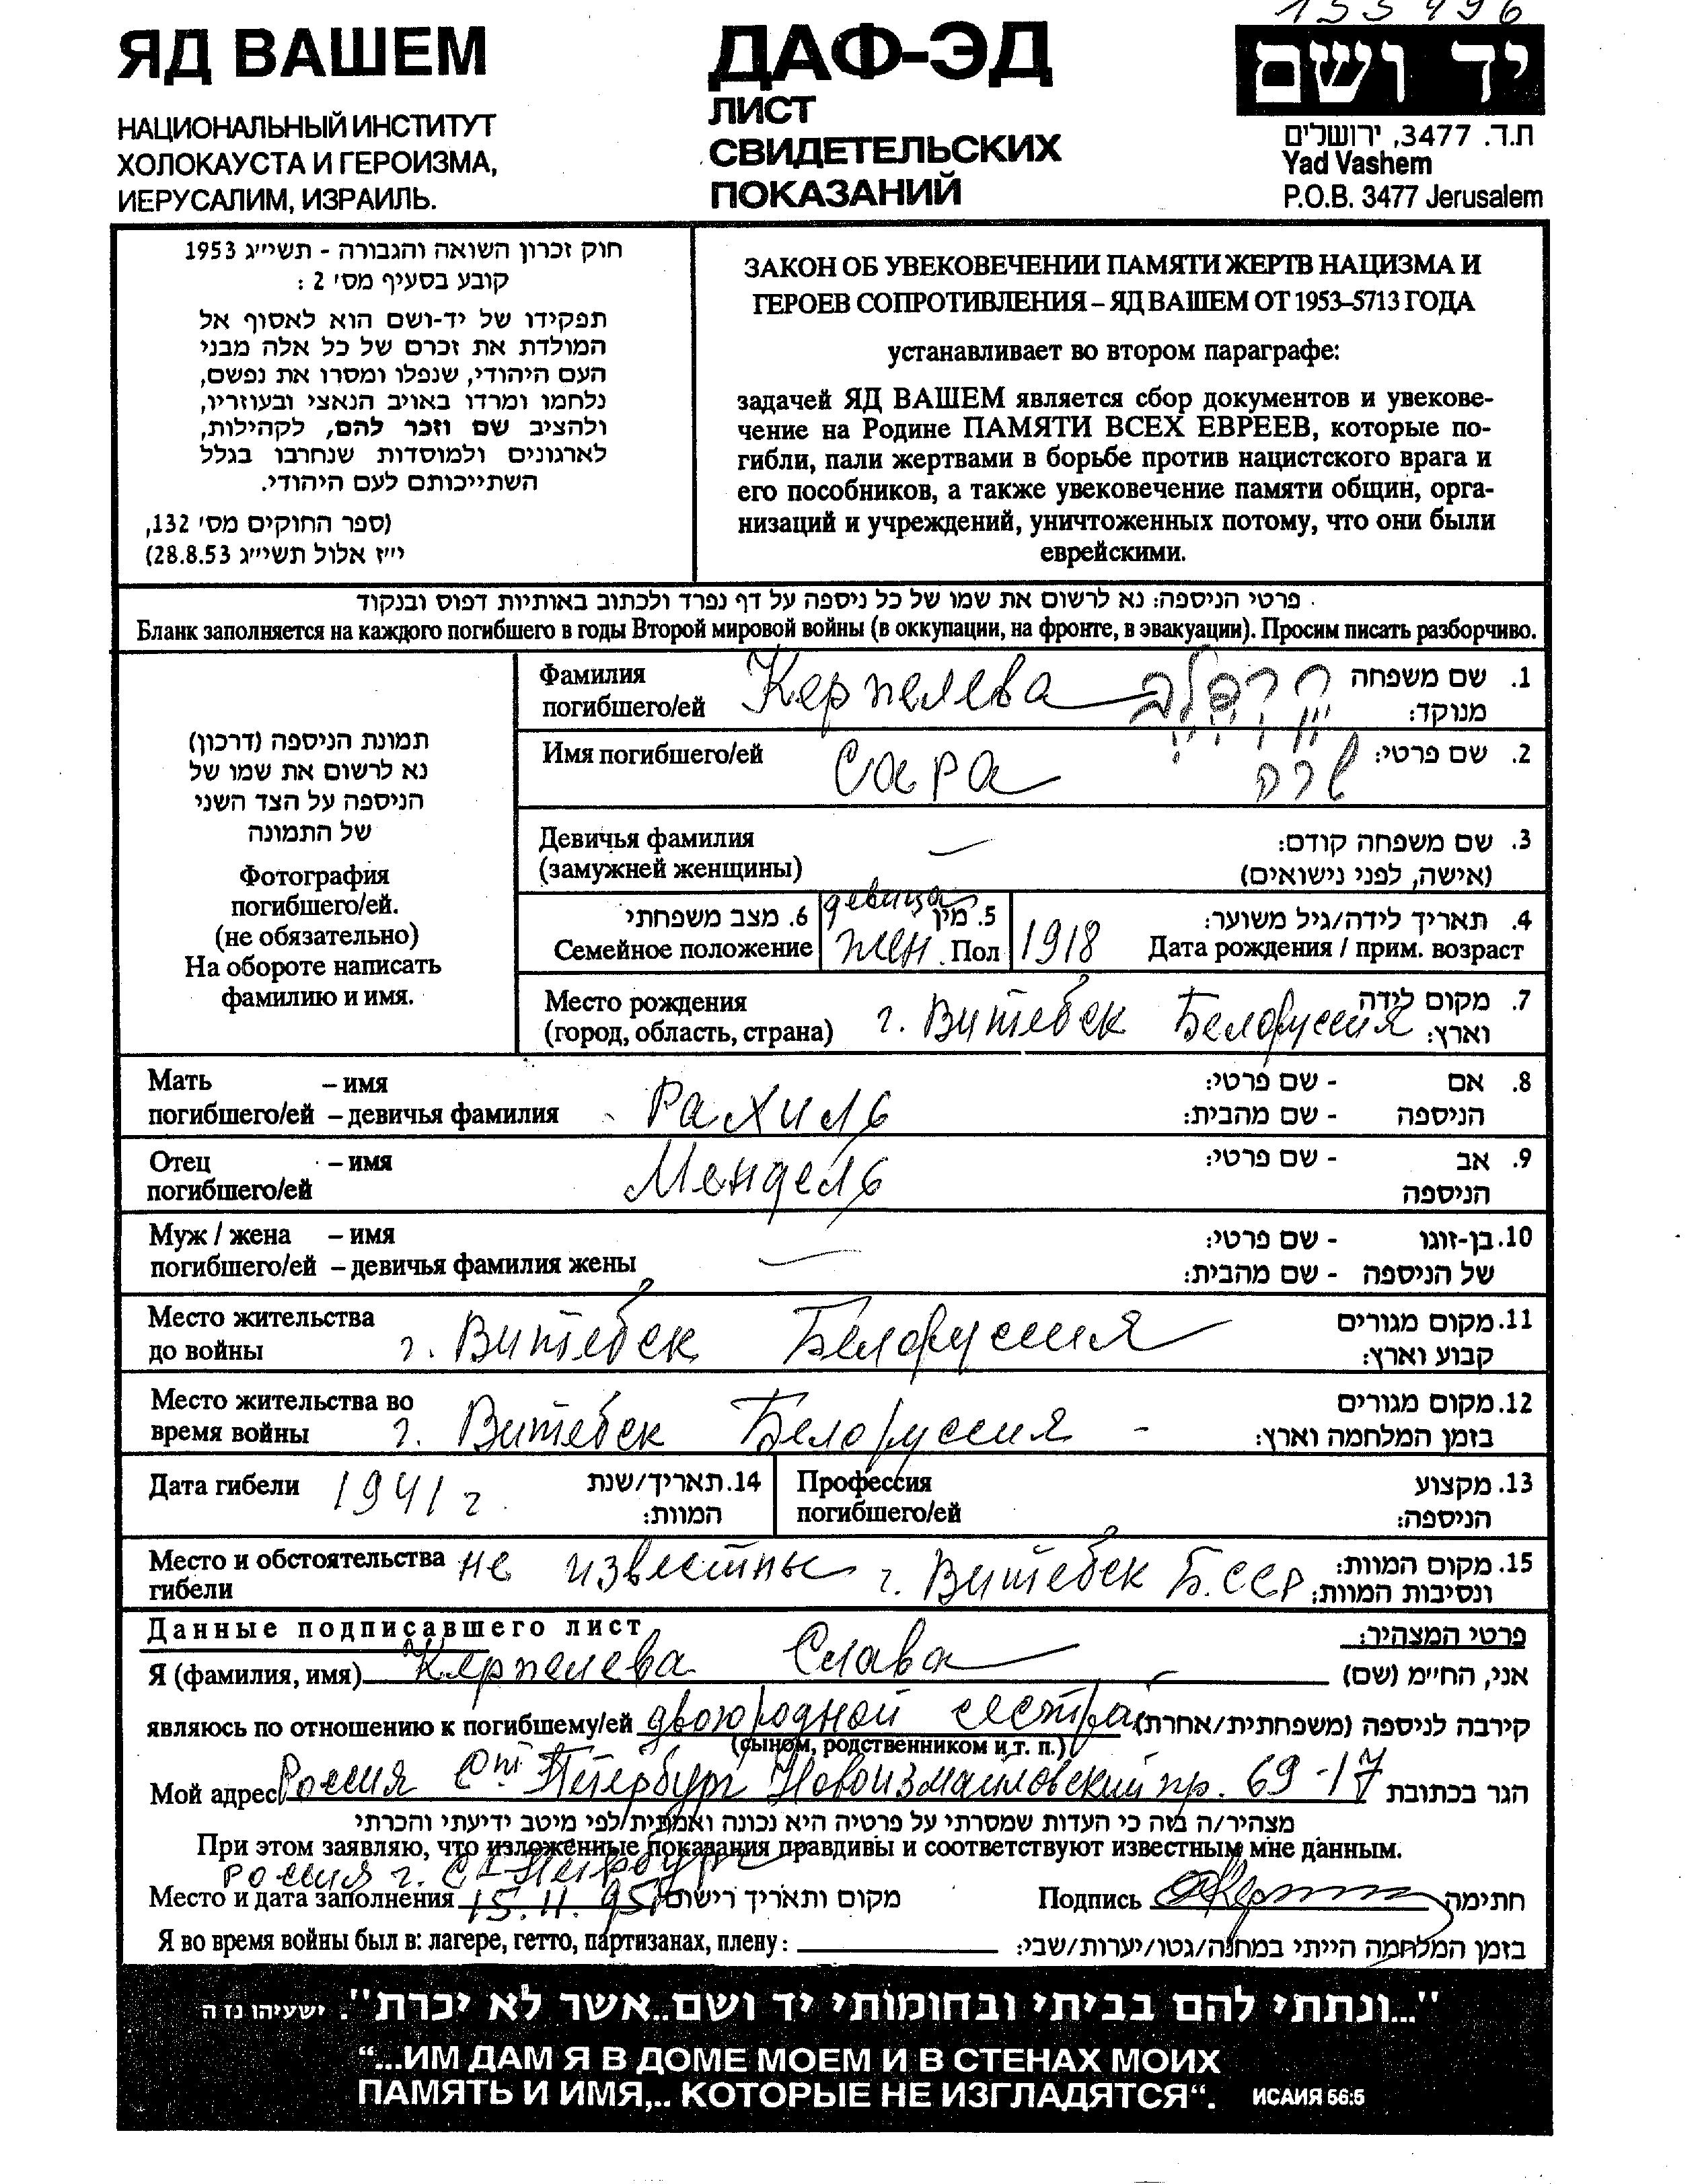 133496
ЯД ВАШЕМ
НАЦИОНАЛЬНЫЙ ИНСТИТУТ
ХОЛОКАУСТА И ГЕРОИЗМА,
ИЕРУСАЛИМ, ИЗРАИЛЬ.
ДАФ-ЭД
ЛИСТ
СВИДЕТЕЛЬСКИХ
ПОКАЗАНИЙ
יד ושם
ת.ד. 3477, ירושלים
Yad Vashem
P.O.B. 3477 Jerusalem
חוק זכרון השואה והגבורה - תשי״ג 1953
קובע בסעיף מס׳ 2 :
תפקידו של יד-ושם הוא לאסוף אל
המולדת את זכרם של כל אלה מבני
העם היהודי, שנפלו ומסרו את נפשם,
נלחמו ומרדו באויב הנאצי ובעוזריו,
ולהציב שם וזכר להם, לקהילות,
לארגונים ולמוסדות שנחרבו בגלל
השתייכותם לעם היהודי.
(ספר החוקים מס׳ 132,
י״ז אלול תשי״ג 28.8.53)
ЗАКОН ОБ УВЕКОВЕЧЕНИИ ПАМЯТИ ЖЕРТВ НАЦИЗМА И
ГЕРОЕВ СОПРОТИВЛЕНИЯ – ЯД ВАШЕМ ОТ 1953–5713 ГОДА
устанавливает во втором параграфе:
задачей ЯД ВАШЕМ является сбор документов и увекове-
чение на Родине ПАМЯТИ ВСЕХ ЕВРЕЕВ, которые по-
гибли, пали жертвами в борьбе против нацистского врага и
его пособников, а также увековечение памяти общин, орга-
низаций и учреждений, уничтоженных потому, что они были
еврейскими.
פרטי הניספה: נא לרשום את שמו של כל ניספה על דף נפרד ולכתוב באותיות דפוס ובנקוד
Бланк заполняется на каждого погибшего в годы Второй мировой войны (в оккупации, на фронте, в эвакуации). Просим писать разборчиво.
תמונת הניספה (דרכון)
נא לרשום את שמו של
הניספה על הצד השני
של התמונה
Фотография
погибшего/ей.
(не обязательно)
На обороте написать
фамилию и имя.
Фамилия 1. שם משפחה
погибшего/ей Керпелева מנוקד:
Имя погибшего/ей Сара שרה 2. שם פרטי:
Девичья фамилия — 3. שם משפחה קודם:
(замужней женщины) (אישה, לפני נישואים)
6. מצב משפחתי девица 5. מין 4. תאריך לידה/גיל משוער:
Семейное положение жен. Пол 1918 Дата рождения / прим. возраст
Место рождения 7. מקום לידה
(город, область, страна) г. Витебск Белоруссия וארץ:
Мать – имя 8. אם - שם פרטי:
погибшего/ей – девичья фамилия Рахиль הניספה - שם מהבית:
Отец – имя 9. אב - שם פרטי:
погибшего/ей Мендель הניספה
Муж / жена – имя 10. בן-זוגו - שם פרטי:
погибшего/ей – девичья фамилия жены — של הניספה - שם מהבית:
Место жительства 11. מקום מגורים
до войны г. Витебск Белоруссия קבוע וארץ:
Место жительства во 12. מקום מגורים
время войны г. Витебск Белоруссия - בזמן המלחמה וארץ:
Дата гибели 1941 г. 14. תאריך/שנת המוות:
Профессия 13. מקצוע
погибшего/ей הניספה:
Место и обстоятельства не известны г. Витебск Б.ССР 15. מקום המוות:
гибели ונסיבות המוות:
Данные подписавшего лист פרטי המצהיר:
Я (фамилия, имя) Керпелева Слава אני, החי״מ (שם)
являюсь по отношению к погибшему/ей двоюродной сестра קירבה לניספה (משפחתית/אחרת)
(сыном, родственником и т. п.)
Мой адрес Россия Спт Петербург Новоизмайловский пр. 69-17 הגר בכתובת
מצהיר/ה בזה כי העדות שמסרתי על פרטיה היא נכונה ואמתית/לפי מיטב ידיעתי והכרתי
При этом заявляю, что изложенные показания правдивы и соответствуют известным мне данным.
Россия г. С-Петербург
Место и дата заполнения 15.11.95 מקום ותאריך רישום Подпись חתימה
Я во время войны был в: лагере, гетто, партизанах, плену: בזמן המלחמה הייתי במחנה/גטו/יערות/שבי:
"...ונתתי להם בביתי ובחומותי יד ושם..אשר לא יכרת". ישעיהו נז ה
“...ИМ ДАМ Я В ДОМЕ МОЕМ И В СТЕНАХ МОИХ
ПАМЯТЬ И ИМЯ,.. КОТОРЫЕ НЕ ИЗГЛАДЯТСЯ“. ИСАИЯ 56:5